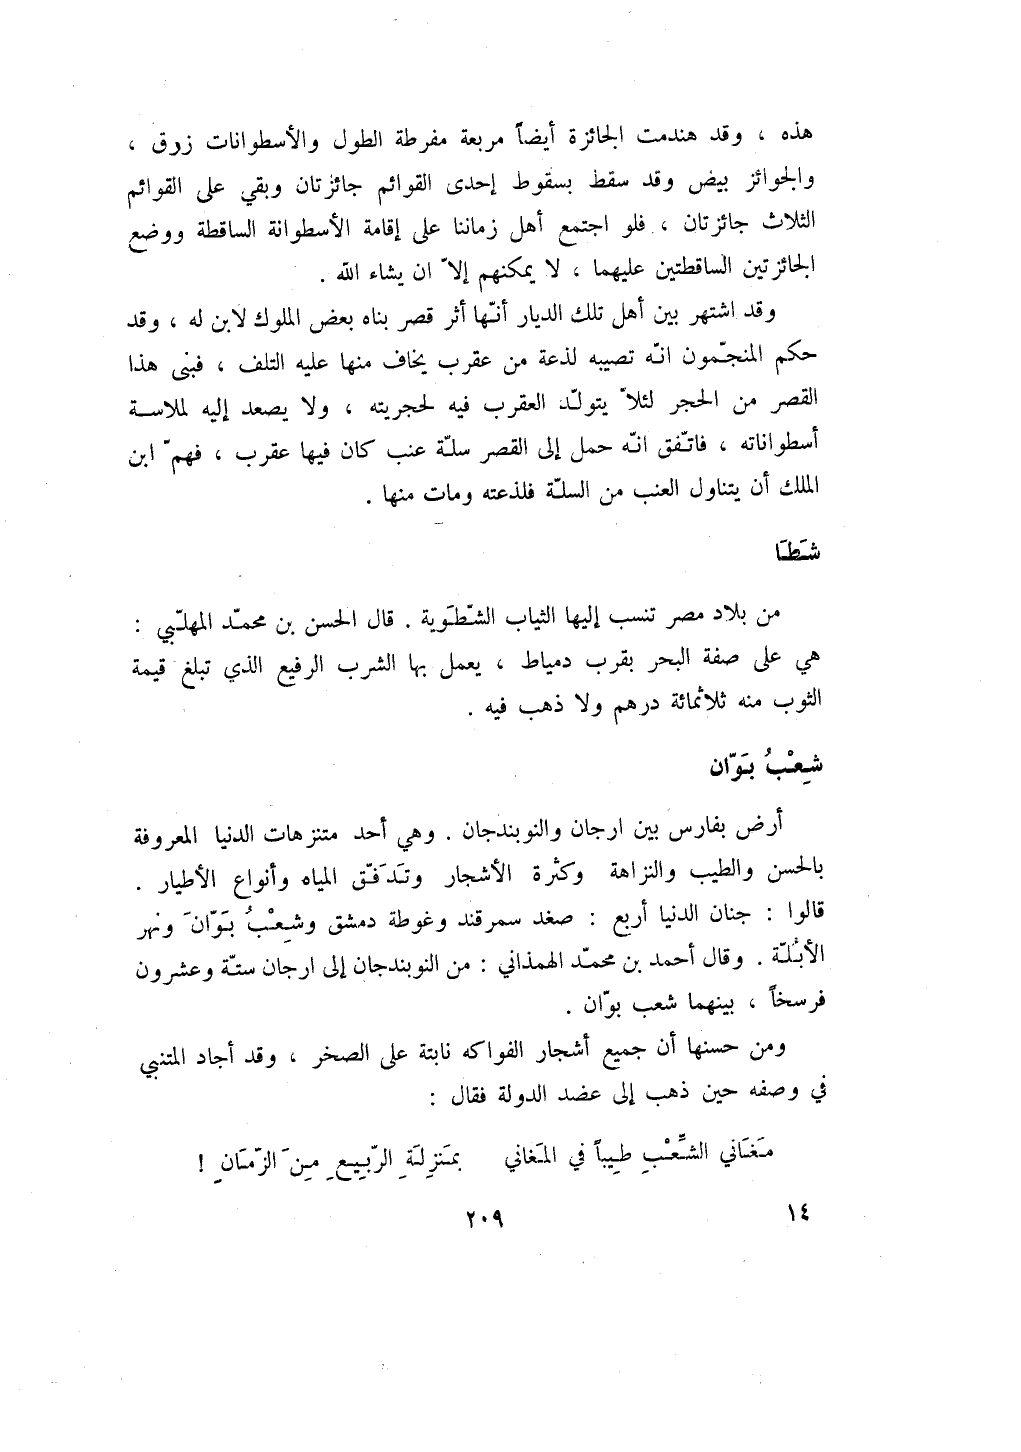 هذه ، وقد هندمت الجائزة أيضاً مربعة مفرطة الطول والأسطوانات زرق ،
والجوائز بيض وقد سقط بسقوط إحدى القوائم جائزتان وبقي على القوائم
الثلاث جائزتان ، فلو اجتمع أهل زماننا على إقامة الأسطوانة الساقطة ووضع
الجائزتين الساقطتين عليهما ، لا يمكنهم إلاّ ان يشاء الله .
وقد اشتهر بين أهل تلك الديار أنّها أثر قصر بناه بعض الملوك لابن له ، وقد
حكم المنجّمون انّه تصيبه لذعة من عقرب يخاف منها عليه التلف ، فبنى هذا
القصر من الحجر لئلاّ يتولّد العقرب فيه لحجريته ، ولا يصعد إليه لملاسة
أسطواناته ، فاتّفق انّه حمل إلى القصر سلّة عنب كان فيها عقرب ، فهمّ ابن
الملك أن يتناول العنب من السلّة فلذعته ومات منها .
شَطَا
من بلاد مصر تنسب إليها الثياب الشّطَوية . قال الحسن بن محمّد المهلّبي :
هي على صفة البحر بقرب دمياط ، يعمل بها الشرب الرفيع الذي تبلغ قيمة
الثوب منه ثلاثمائة درهم ولا ذهب فيه .
شِعْبُ بَوّان
أرض بفارس بين ارجان والنوبندجان . وهي أحد متنزهات الدنيا المعروفة
بالحسن والطيب والنزاهة وكثرة الأشجار وتَدَفّق المياه وأنواع الأطيار .
قالوا : جنان الدنيا أربع : صغد سمرقند وغوطة دمشق وشِعْبُ بَوّانَ ونهر
الأبُلّة . وقال أحمد بن محمّد الهمذاني : من النوبندجان إلى ارجان ستّة وعشرون
فرسخاً ، بينهما شعب بوّان .
ومن حسنها أن جميع أشجار الفواكه نابتة على الصخر ، وقد أجاد المتنبي
في وصفه حين ذهب إلى عضد الدولة فقال :
مَغَاني الشِّعْبِ طِيباً في المَغاني بمَنزِلَةِ الرّبِيعِ مِنَ الزّمَانِ !
١٤ ٢٠٩